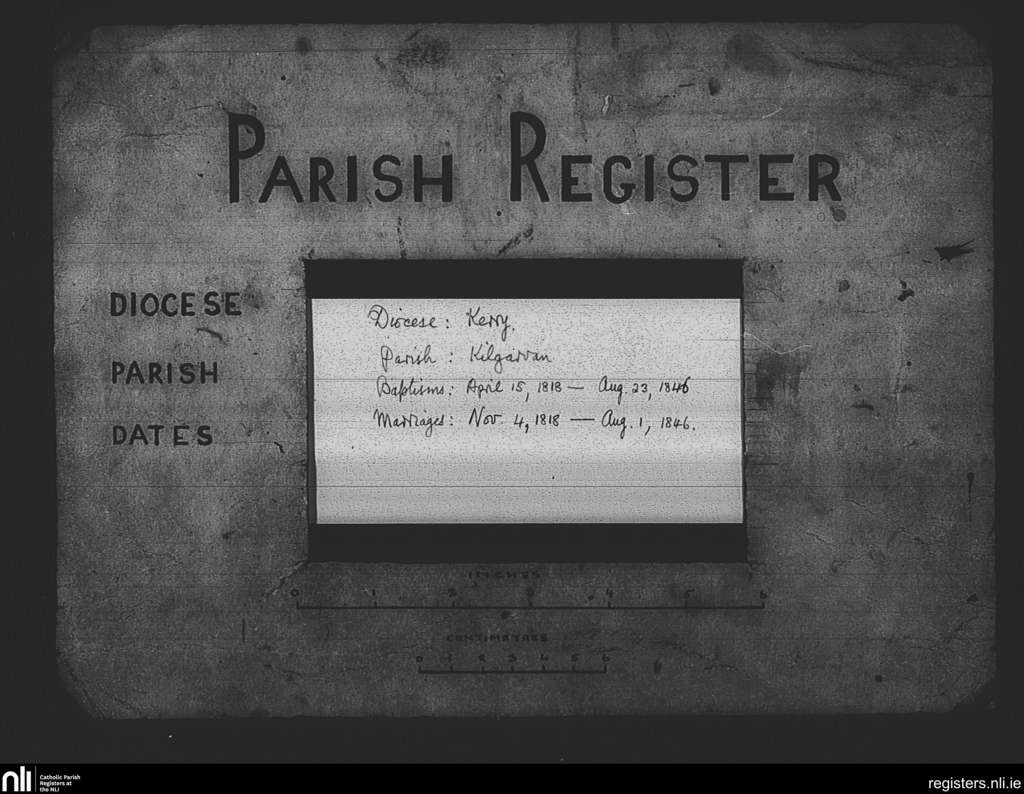 PARISH REGISTER
DIOCESE
PARISH
DATES
Diocese: Kerry.
Parish: Kilgarvan
Baptisms: April 15, 1818 — Aug. 23, 1846
Marriages: Nov. 4, 1818 — Aug. 1, 1846.
INCHES
0 1 2 3 4 5 6
CENTIMETRES
0 1 2 3 4 5 6
nli
Catholic Parish
Registers at
the NLI
registers.nli.ie